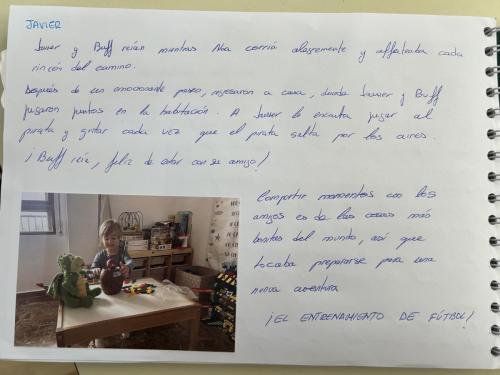 JAVIER
Javier y Buff reían mientras Noa corría alegremente y olfateaba cada
rincón del camino.
Después de un emocionante paseo, regresaron a casa, donde Javier y Buff
jugaron juntos en la habitación. A Javier le encanta jugar al
pirata y gritar cada vez que el pirata salta por los aires.
¡Buff reía, feliz de estar con su amigo!
Compartir momentos con los
amigos es de las cosas más
bonitas del mundo, así que
tocaba prepararse para una
nueva aventura
¡EL ENTRENAMIENTO DE FÚTBOL!